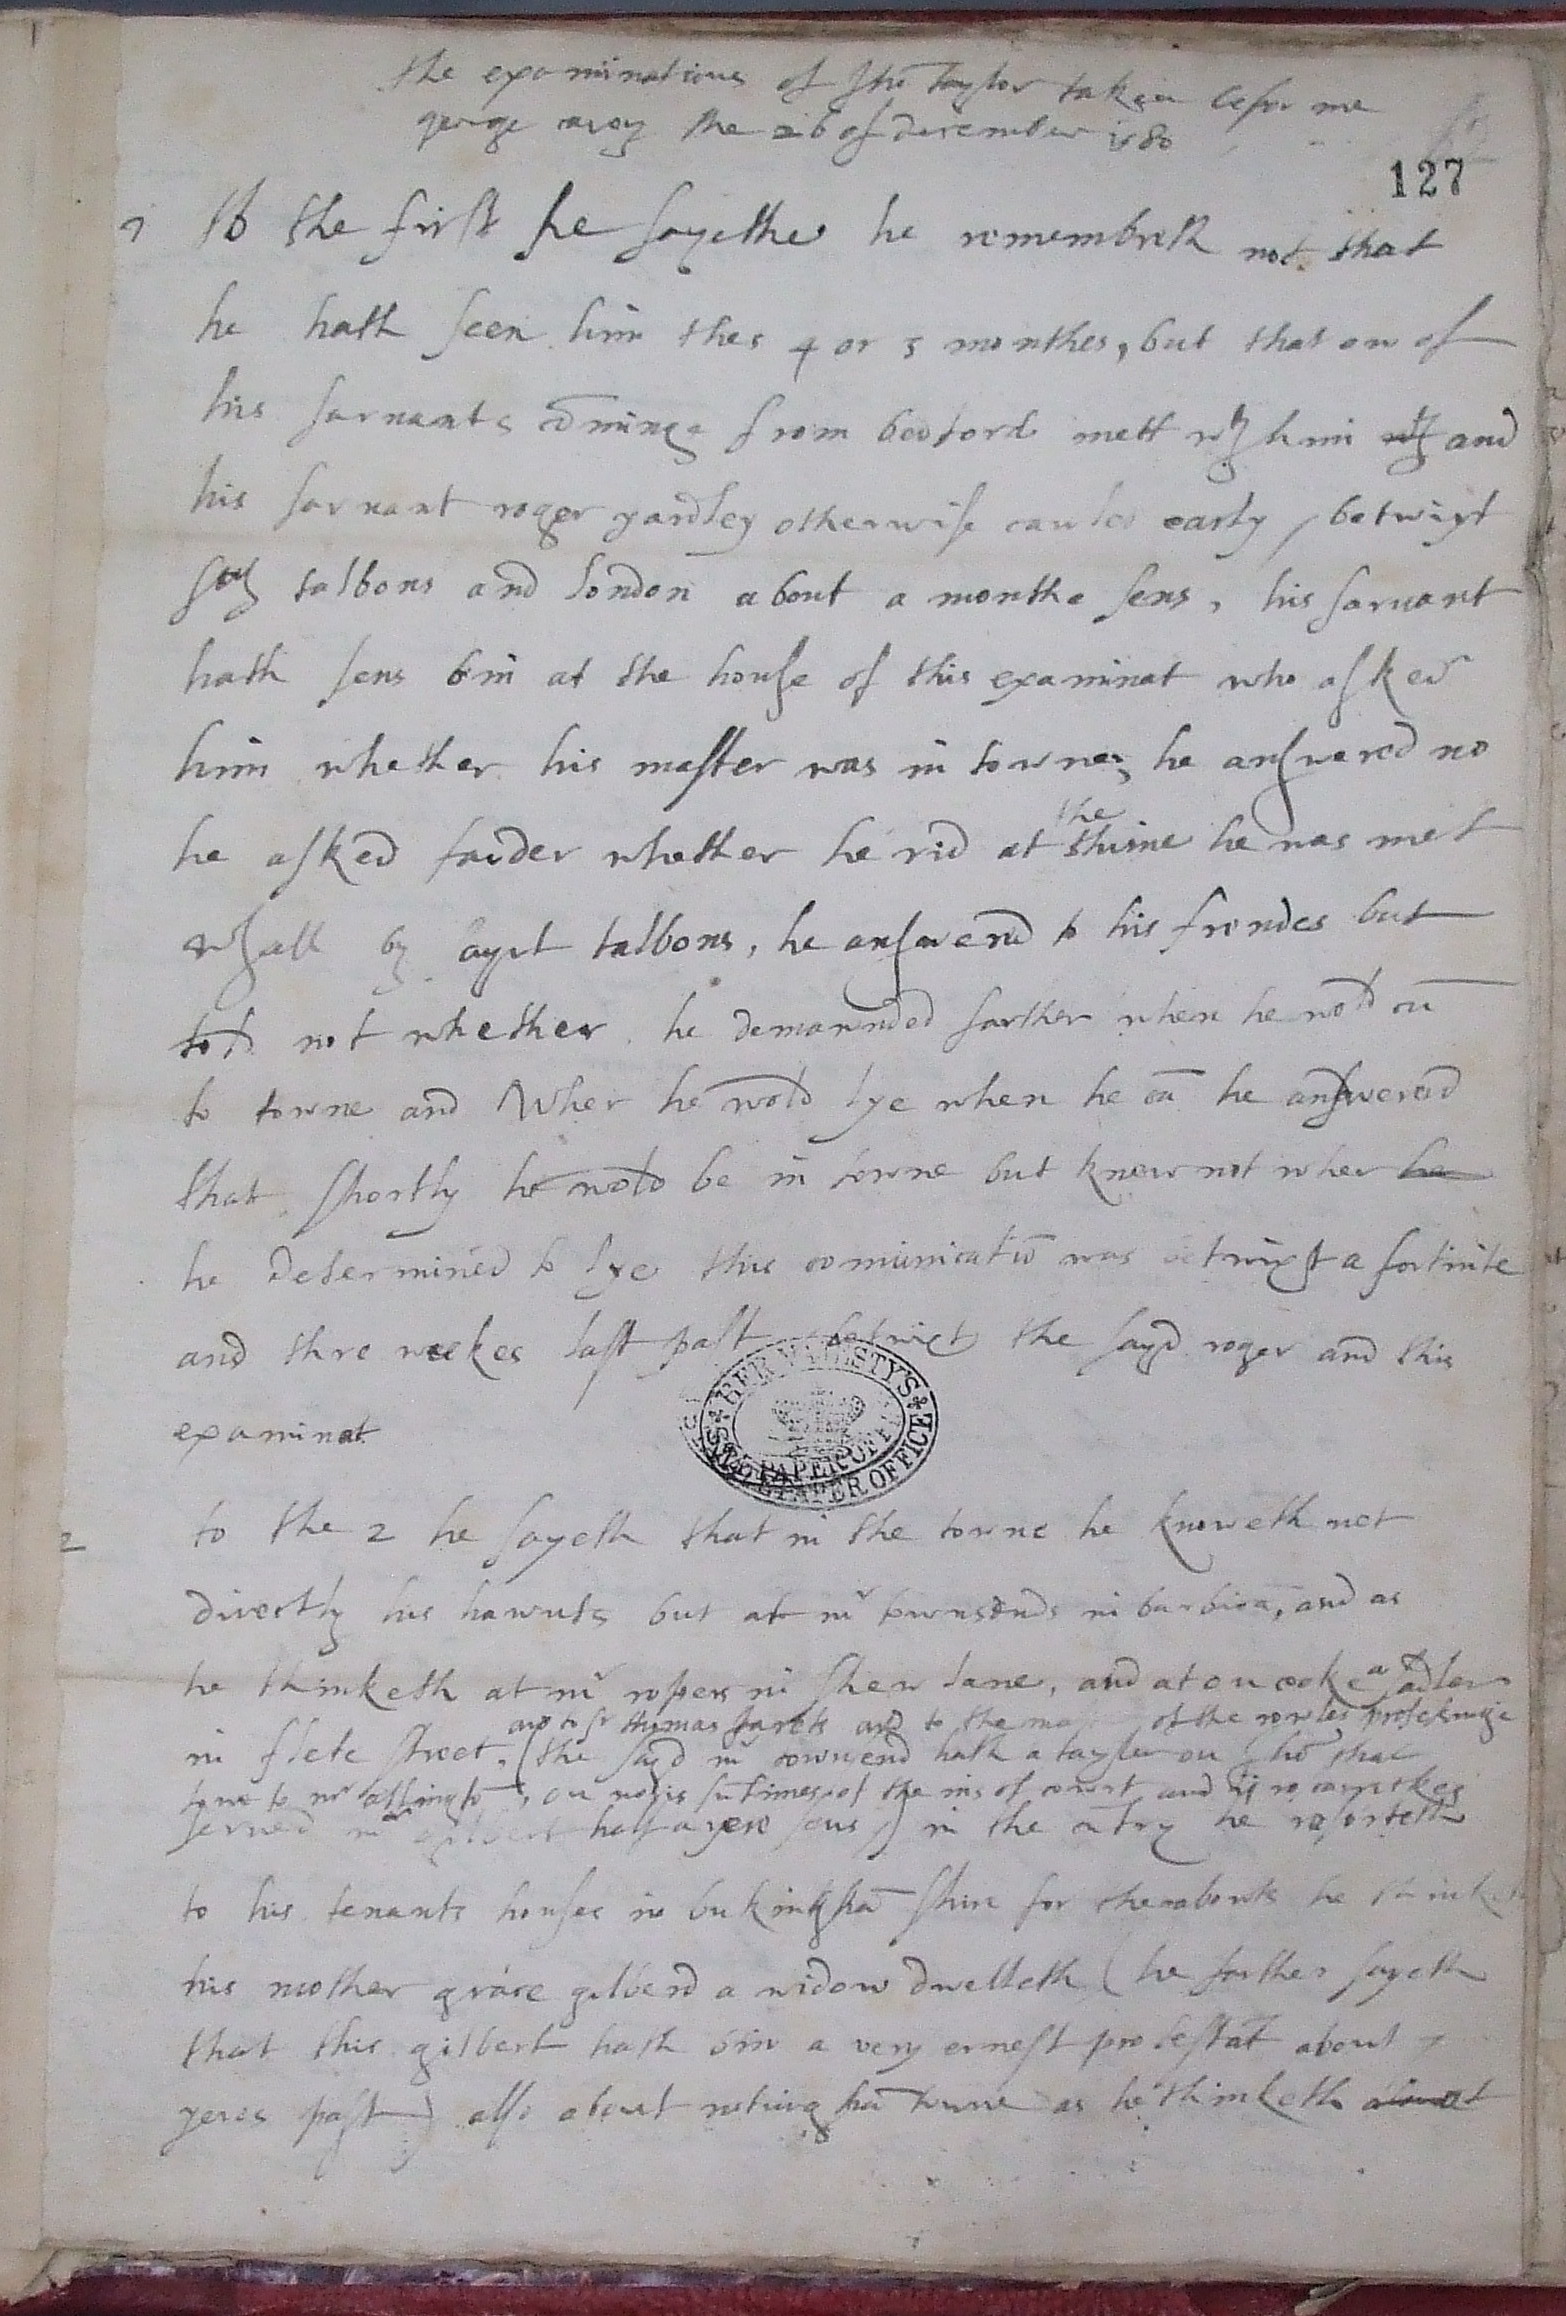 the examinations of Jhō Taylor taken befor me
george carey the 26 of december 1580
127
1 To the first he sayethe he remembreth not that
he hath seen him thes 4 or 5 monthes, but that on of
his sarvants cōminge from bedford mett wth him wth and
his sarvant roger yardley otherwise cauled early, betwixt
talbons and london about a monthe sens, his sarvant
hath sens bin at the house of this examinat who asked
him whether his master was in towne, he answered no
he asked farder whether he rid at the thime he was met
wthall by talbons, he answered to his frendes but
told not whether he demaunded farther when he wold cū
to towne and Wher he wold lye when he cā he answered
that shortly he wold be in towne but knew not wher he
he determined to lye this cōmunicatiō was betwixt a fortnite
and thre weekes last past betwict the sayd roger and this
examinat
HER MAJESTY'S STATE PAPER OFFICE
2 to the 2 he sayeth that in the towne he knoweth not
directly his hawnts but at mr townsends in barbicā, and as
he thinketh at mr ropers in shew lane, and at on coke a
in flete street, (the sayd mr townsend hath a tayler on Jhō that
and to sr thomas and to the of the rowles
to mr allingtō, on notis sūtimes of the ins of court and
served mr half a yere sens) in the cūtry he resorteth
to his tenants houses in bukinghā shire for therabouts he thinketh
his mother grace gilberd a widow dwelleth (he farther sayeth
that this gilbert hath bin a very ernest protestāt about 7
yeres past) also about notinghā towne as he thinketh about